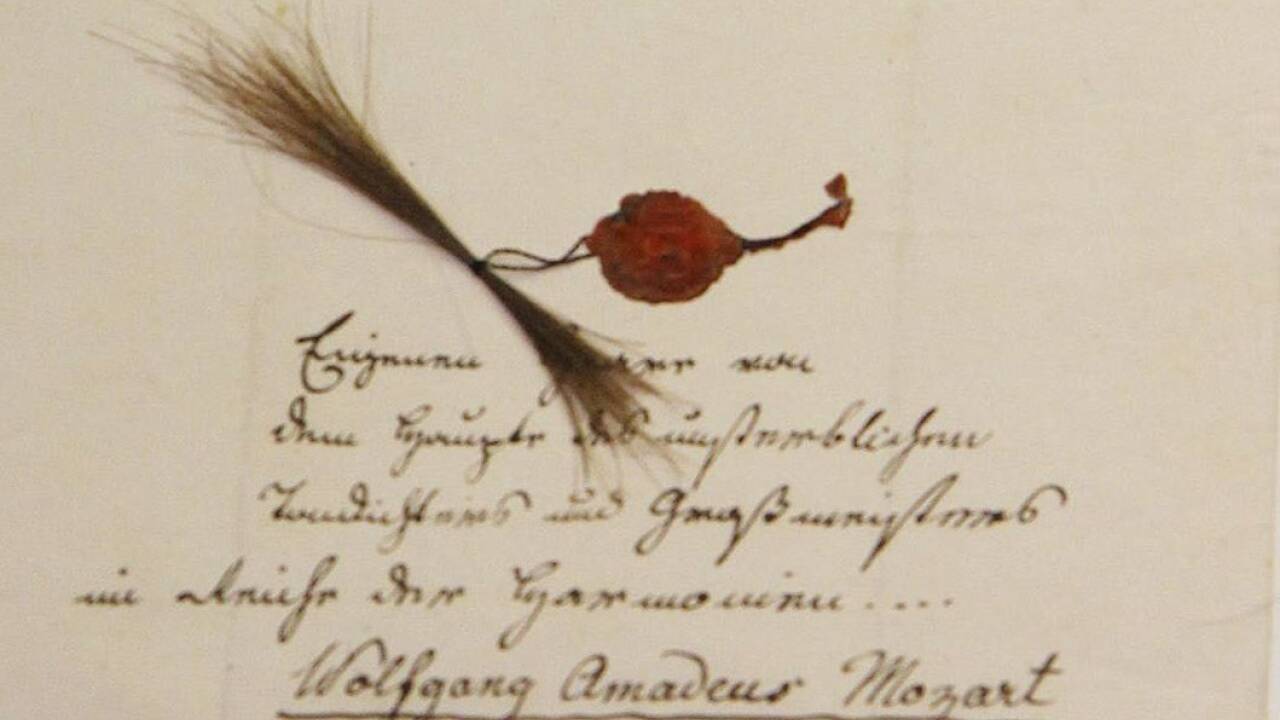 Eigenen Haare von
dem Haupte des unsterblichen
Tondichters und Großmeisters
im Reiche der Harmonien....
Wolfgang Amadeus Mozart